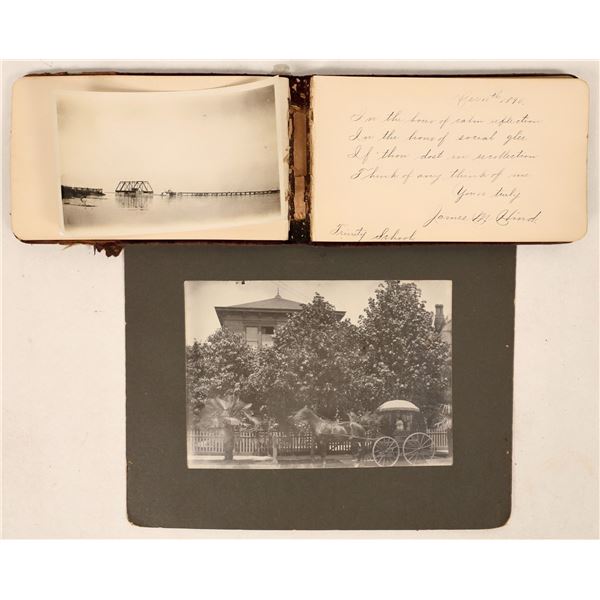 In the hour of calm reflection
In the hour of social glee
If thou dost in recollection
Think of any think of me
Yours truly
James
Trinity School